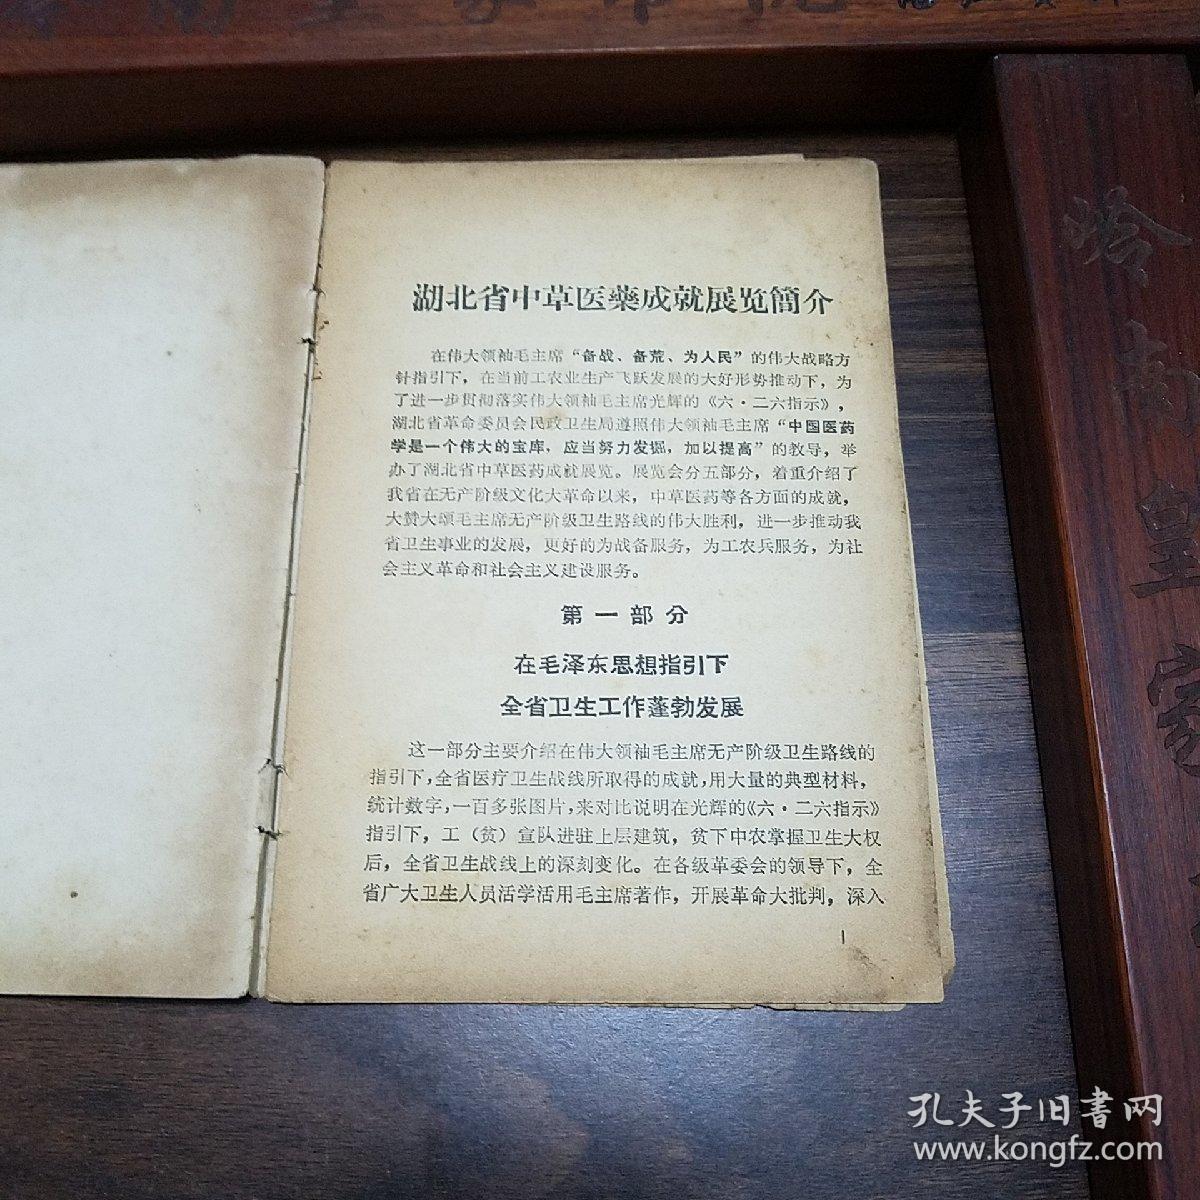 湖北省中草医藥成就展览簡介
在伟大领袖毛主席“备战、备荒、为人民”的伟大战略方
针指引下，在当前工农业生产飞跃发展的大好形势推动下，为
了进一步贯彻落实伟大领袖毛主席光辉的《六·二六指示》，
湖北省革命委员会民政卫生局遵照伟大领袖毛主席“中国医药
学是一个伟大的宝库，应当努力发掘，加以提高”的教导，举
办了湖北省中草医药成就展览。展览会分五部分，着重介绍了
我省在无产阶级文化大革命以来，中草医药等各方面的成就，
大赞大颂毛主席无产阶级卫生路线的伟大胜利，进一步推动我
省卫生事业的发展，更好的为战备服务，为工农兵服务，为社
会主义革命和社会主义建设服务。
第一部分
在毛泽东思想指引下
全省卫生工作蓬勃发展
这一部分主要介绍在伟大领袖毛主席无产阶级卫生路线的
指引下，全省医疗卫生战线所取得的成就，用大量的典型材料，
统计数字，一百多张图片，来对比说明在光辉的《六·二六指示》
指引下，工（贫）宣队进驻上层建筑，贫下中农掌握卫生大权
后，全省卫生战线上的深刻变化。在各级革委会的领导下，全
省广大卫生人员活学活用毛主席著作，开展革命大批判，深入
1
岭南皇家
孔夫子旧書网
www.kongfz.com